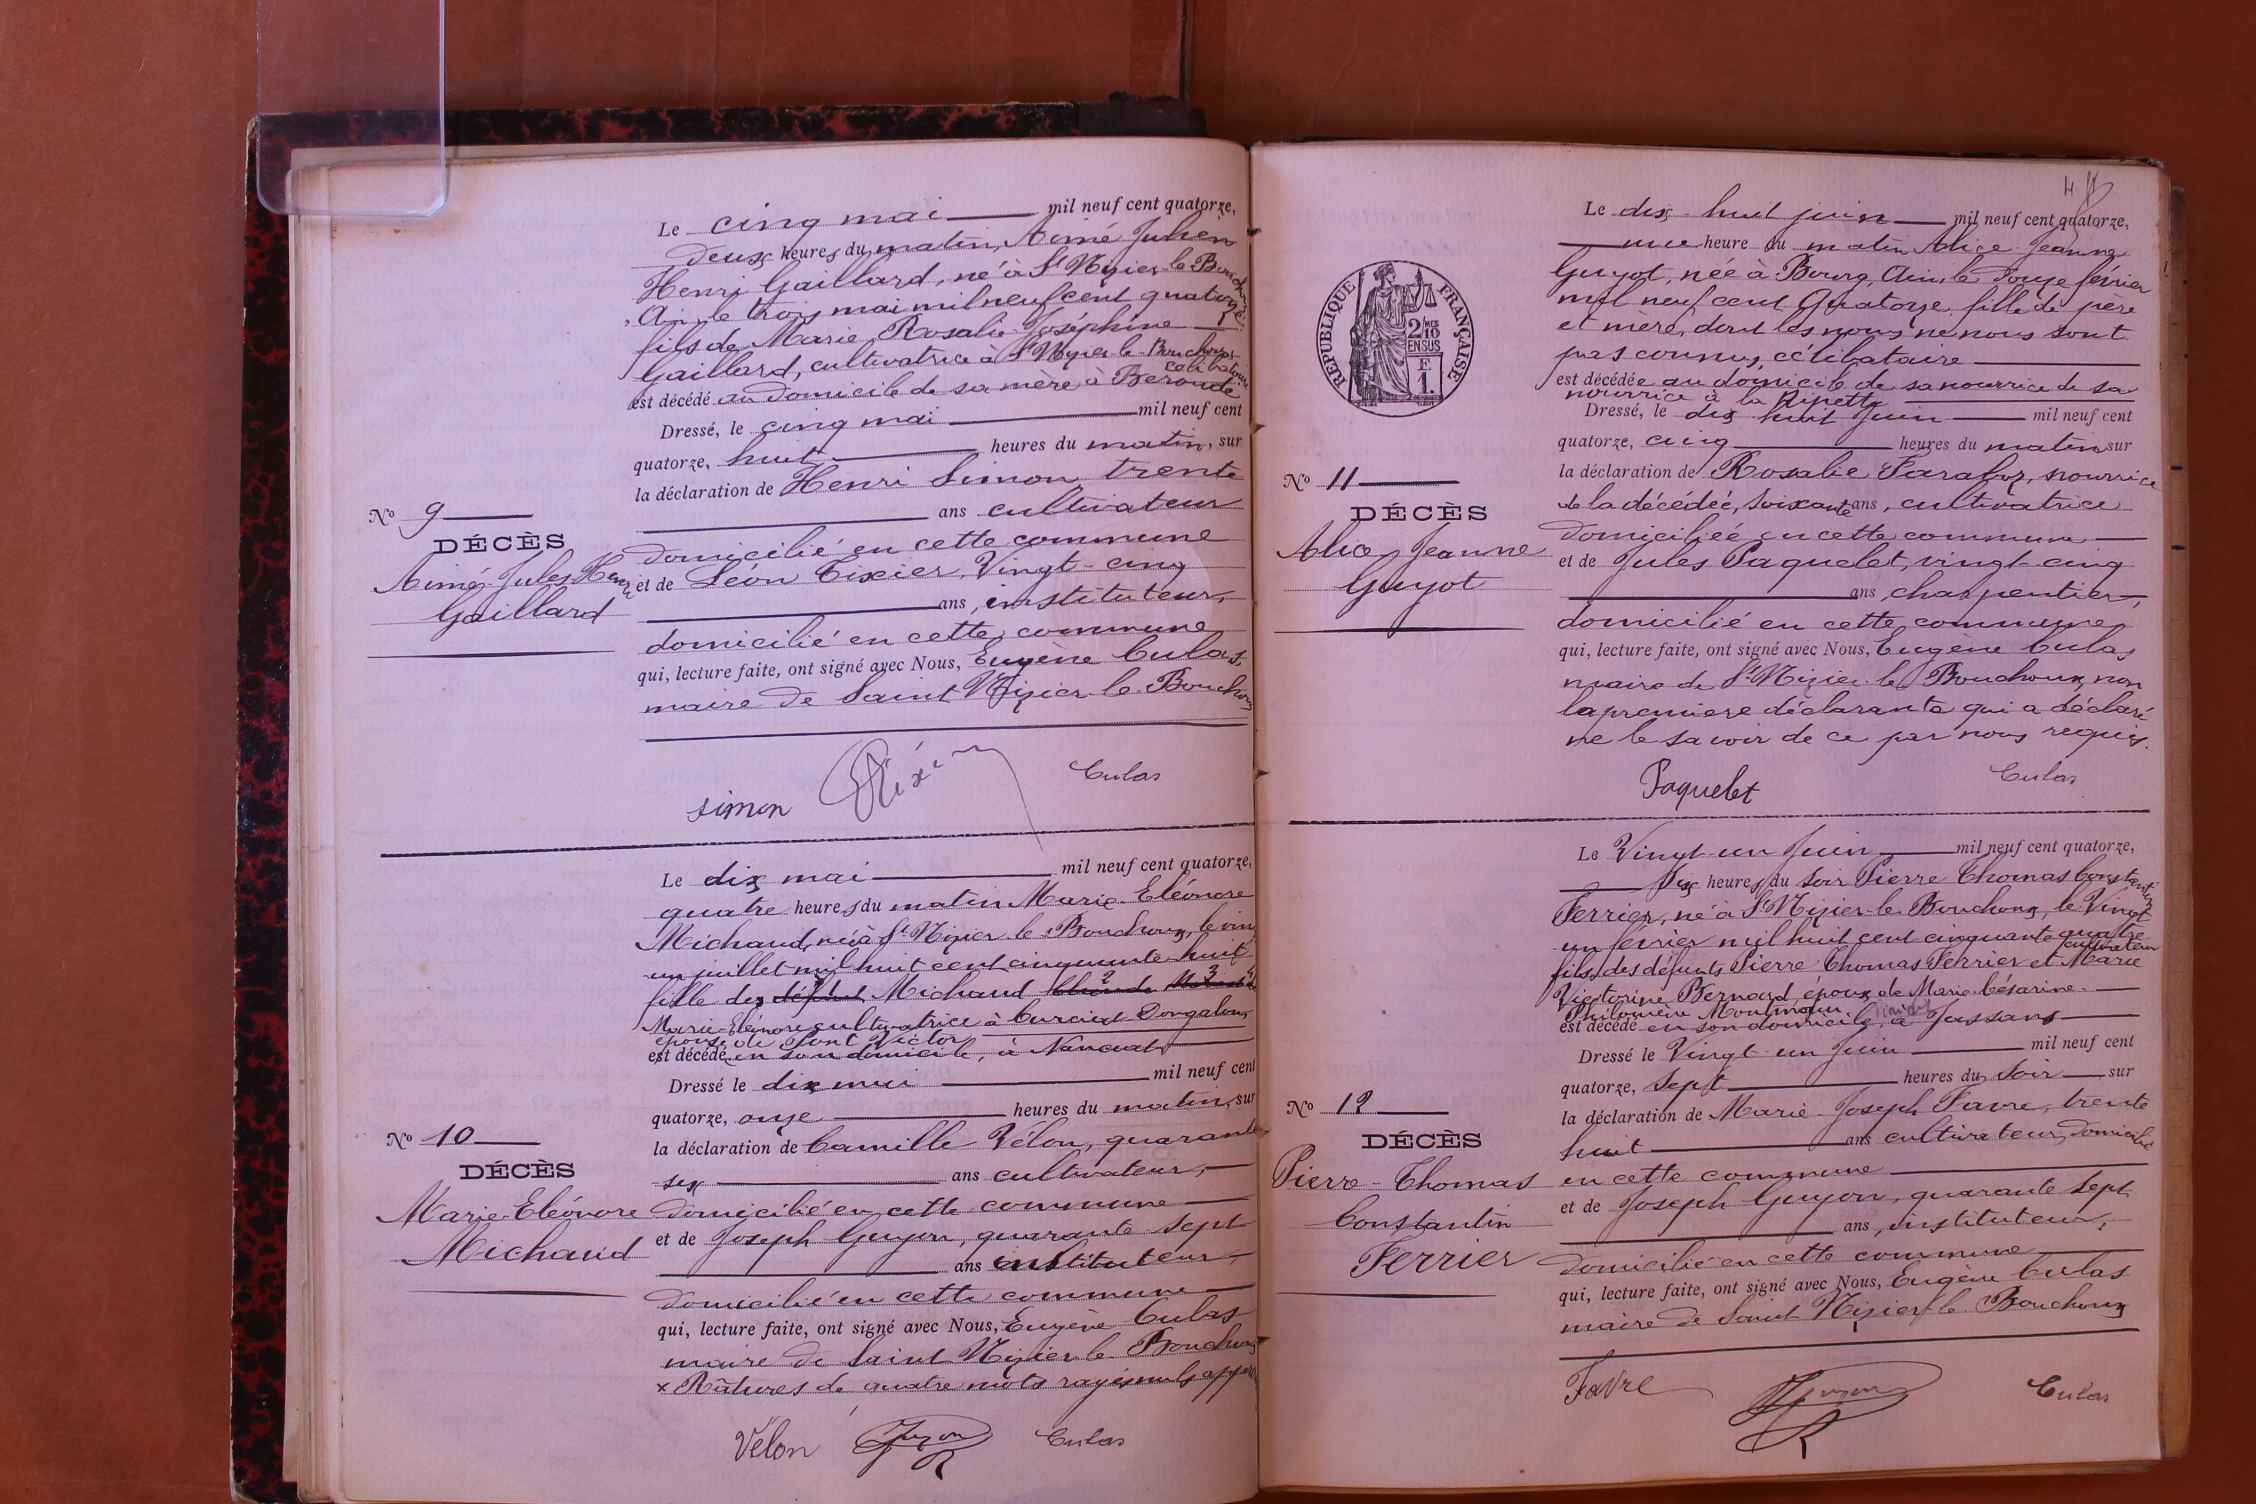 Le cinq mai mil neuf cent quatorze,
deux heures du matin, Aimé Julien
Henri Gaillard, né à St Nizier-le-Bouchoux
, Ain, le trois mai mil neuf cent quatorze
fils de Marie Rosalie Joséphine
Gaillard, cultivatrice à St Nizier-le-Bouchoux, célibataire
est décédé au domicile de sa mère à Beroude
Dressé, le cinq mai mil neuf cent
quatorze, huit heures du matin, sur
la déclaration de Henri Simon trente
ans cultivateur
domicilié en cette commune
et de Léon Tixier, Vingt-cinq
ans, instituteur,
domicilié en cette commune
qui, lecture faite, ont signé avec Nous, Eugène Culas,
maire de Saint Nizier-le-Bouchoux
No 9
DÉCÈS
Aimé Jules Henri
Gaillard
simon Tixier Culas
Le dix mai mil neuf cent quatorze,
quatre heures du matin Marie Eléonore
Michaud, née à St Nizier-le-Bouchoux, le vingt
un juillet mil huit cent cinquante-huit
fille des défunt Michaud
Marie-Eléonore cultivatrice à Curciat-Dongalon,
épouse de Pont Victor
est décédée en son domicile, à
Dressé le dix mai mil neuf cent
quatorze, onze heures du matin, sur
la déclaration de Camille Vélon, quarante
six ans cultivateur,
domicilié en cette commune
et de Joseph Guyon, quarante sept
ans instituteur,
domicilié en cette commune
qui, lecture faite, ont signé avec Nous, Eugène Culas
maire de Saint Nizier-le-Bouchoux
x Ratures de quatre mots rayés nuls
No 10
DÉCÈS
Marie-Eléonore
Michaud
Vélon Guyon Culas
RÉPUBLIQUE FRANÇAISE
2 MES 10
EN SUS
E
1.
Le dix-huit juin mil neuf cent quatorze,
une heure du matin Alice Jeanne
Guyot, née à Bourg, Ain, le douze février
mil neuf cent Quatorze fille de père
et mère, dont les noms ne nous sont
pas connus, célibataire
est décédée au domicile de sa nourrice de sa
nourrice à la Ripette
Dressé, le dix huit Juin mil neuf cent
quatorze, cinq heures du matin sur
la déclaration de Rosalie nourrice
de la décédée, soixante ans, cultivatrice
domiciliée en cette commune
et de Jules Paquelet, vingt-cinq
ans, charpentier,
domicilié en cette commune
qui, lecture faite, ont signé avec Nous, Eugène Culas
maire de St Nizier-le-Bouchoux, non
la première déclarante qui a déclaré
ne le savoir de ce par nous requis.
No 11
DÉCÈS
Alice Jeanne
Guyot
Paquelet Culas
Le Vingt-un Juin mil neuf cent quatorze,
six heures du soir Pierre Thomas Constantin
Ferrier, né à St Nizier-le-Bouchoux, le Vingt
un février mil huit cent cinquante quatre cultivateur
fils des défunts Pierre Thomas Ferrier et Marie
Victorine Bernard époux de Marie-Césarine
Philomène
est décédé en son domicile, à Jassans
Dressé le Vingt-un Juin mil neuf cent
quatorze, sept heures du soir sur
la déclaration de Marie-Joseph Favre, trente
huit ans cultivateur, domicilié
en cette commune
et de Joseph Guyon, quarante sept
ans, instituteur,
domicilié en cette commune
qui, lecture faite, ont signé avec Nous, Eugène Culas
maire de Saint Nizier-le-Bouchoux
No 12
DÉCÈS
Pierre-Thomas
Constantin
Ferrier
Favre Guyon Culas